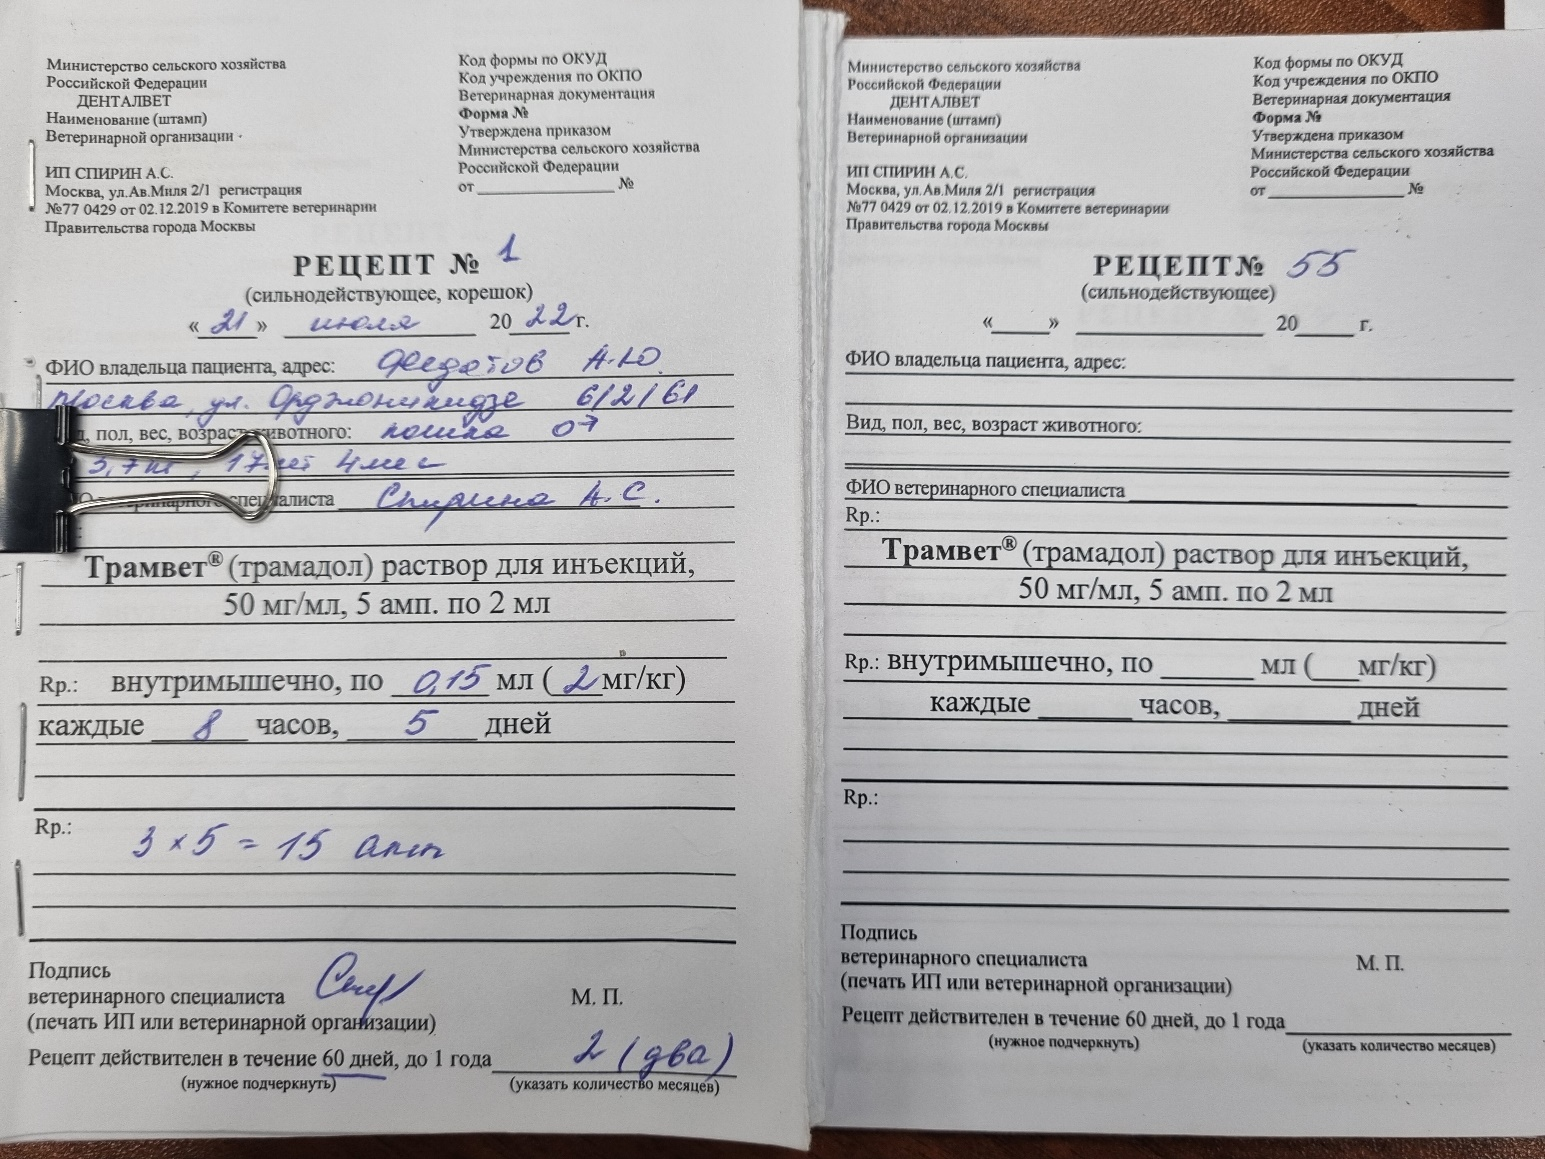 Министерство сельского хозяйства
Российской Федерации
ДЕНТАЛВЕТ
Наименование (штамп)
Ветеринарной организации
ИП СПИРИН А.С.
Москва, ул.Ав.Миля 2/1 регистрация
№77 0429 от 02.12.2019 в Комитете ветеринарии
Правительства города Москвы
Код формы по ОКУД
Код учреждения по ОКПО
Ветеринарная документация
Форма №
Утверждена приказом
Министерства сельского хозяйства
Российской Федерации
от №
РЕЦЕПТ № 1
(сильнодействующее, корешок)
« 21 » июля 20 22 г.
ФИО владельца пациента, адрес: Федотов А.Ю.
Москва, ул. Орджоникидзе 6/2/61
пол, вес, возраст животного: кошка
3,7 кг, 17 лет 4 мес
ветеринарного специалиста Спирина А.С.
Трамвет® (трамадол) раствор для инъекций,
50 мг/мл, 5 амп. по 2 мл
Rp.: внутримышечно, по 0,15 мл ( 2 мг/кг)
каждые 8 часов, 5 дней
Rp.:
3 x 5 = 15 амп
Подпись
ветеринарного специалиста
М. П.
(печать ИП или ветеринарной организации)
Рецепт действителен в течение 60 дней, до 1 года 2 (два)
(нужное подчеркнуть) (указать количество месяцев)
Министерство сельского хозяйства
Российской Федерации
ДЕНТАЛВЕТ
Наименование (штамп)
Ветеринарной организации
ИП СПИРИН А.С.
Москва, ул.Ав.Миля 2/1 регистрация
№77 0429 от 02.12.2019 в Комитете ветеринарии
Правительства города Москвы
Код формы по ОКУД
Код учреждения по ОКПО
Ветеринарная документация
Форма №
Утверждена приказом
Министерства сельского хозяйства
Российской Федерации
от №
РЕЦЕПТ№ 55
(сильнодействующее)
« » 20 г.
ФИО владельца пациента, адрес:
Вид, пол, вес, возраст животного:
ФИО ветеринарного специалиста
Rp.:
Трамвет® (трамадол) раствор для инъекций,
50 мг/мл, 5 амп. по 2 мл
Rp.: внутримышечно, по мл ( мг/кг)
каждые часов, дней
Rp.:
Подпись
ветеринарного специалиста
М. П.
(печать ИП или ветеринарной организации)
Рецепт действителен в течение 60 дней, до 1 года
(нужное подчеркнуть) (указать количество месяцев)